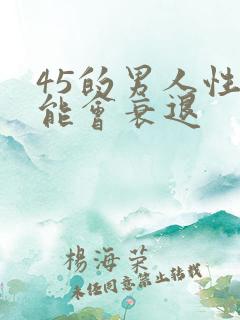 45的男人性
能會衰退
楊海荣
未任同意禁止转载